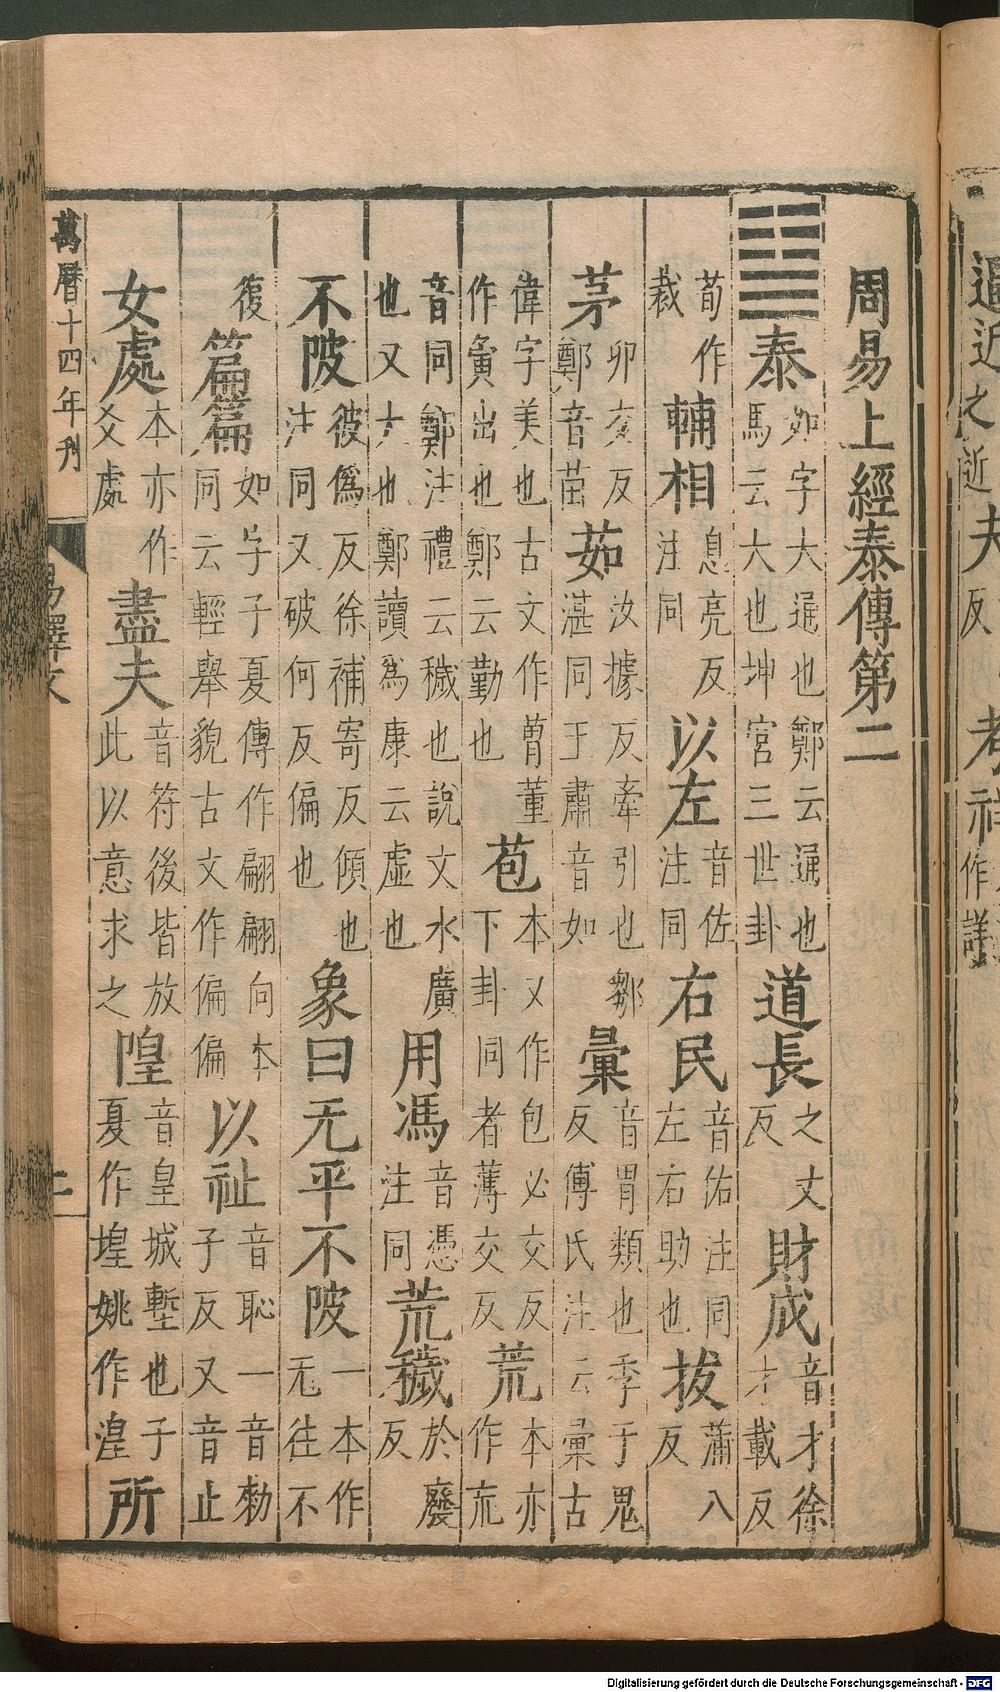 周易上經泰傳第二
泰如字大通也鄭云通也馬云大也坤宮三世卦道長之丈反財成音才徐才載反
荀作裁輔相息亮反注同以左音佐注同右民音佑注同左右助也拔蒲八反
茅卯交反鄭音苗茹汝據反牽引也鄒湛同王肅音如彙音胃類也李于鬼反傅氏注云彙古
偉字美也古文作𦳊董作夤出也鄭云勤也苞本又作包必交反下卦同者薄交反荒本亦作㠩
音同鄭注禮云穢也說文水廣也又大也鄭讀為康云虛也用馮音憑注同荒穢於廢反
不陂彼偽反徐補寄反傾也注同又破何反偏也象曰无平不陂一本作无往不
復篇篇如字子夏傳作翩翩向本同云輕舉貌古文作偏偏以祉音恥一音勑子反又音止
女處本亦作爻處盡夫音符後皆放此以意求之隍音皇城塹也子夏作堭姚作湟所
萬曆十四年刊
易釋文
二
過近之近夫
反
考祥
作詳
Digitalisierung gefördert durch die Deutsche Forschungsgemeinschaft - DFG